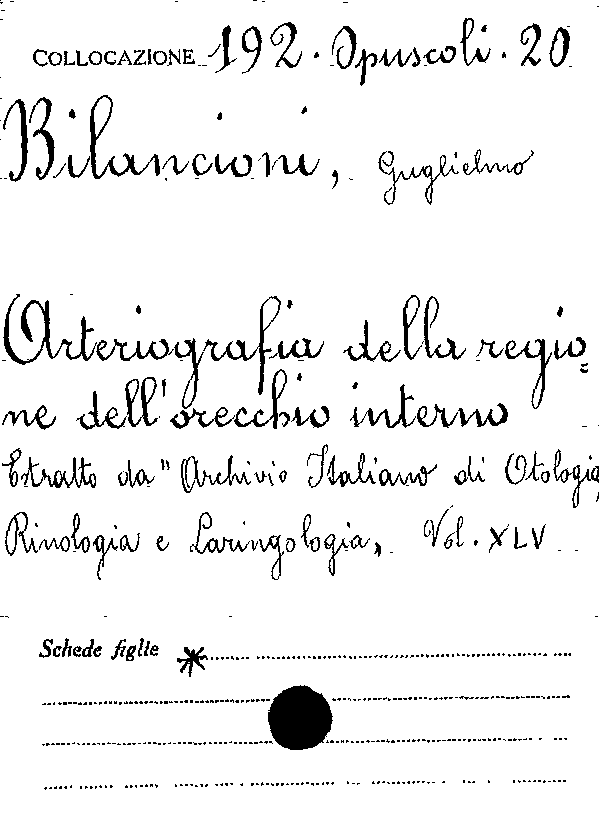 COLLOCAZIONE 192. Opuscoli. 20
Bilancioni, Guglielmo
Arteriografia della regio=
ne dell'orecchio interno
Estratto da "Archivio Italiano di Otologia,
Rinologia e Laringologia, Vol. XLV
Schede figlie *